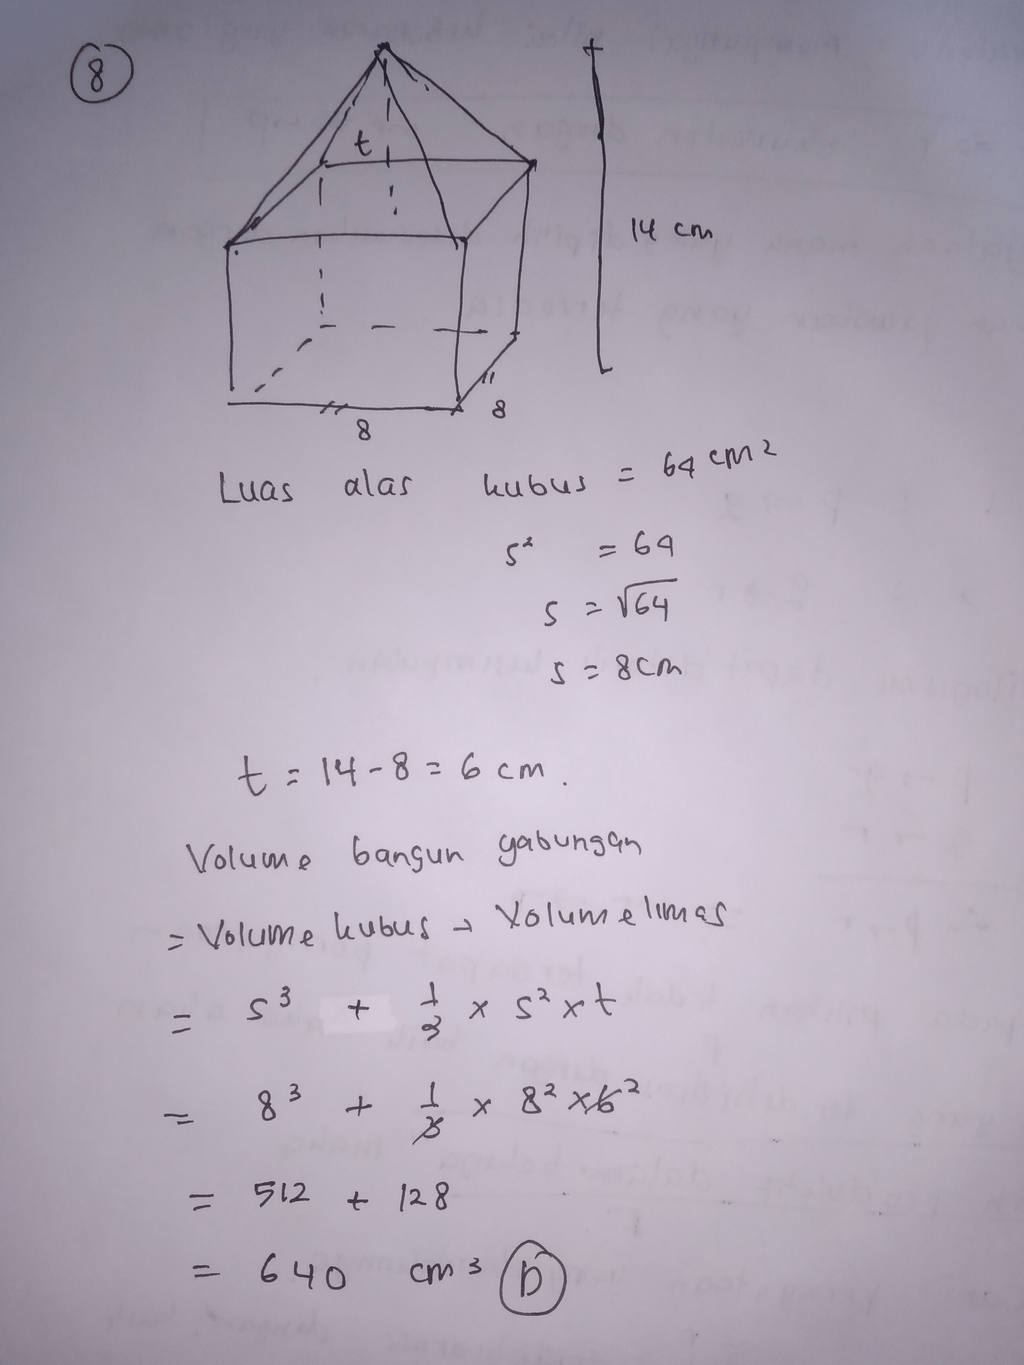 8
t
14 cm
8
8
Luas alas kubus = 64 cm²
s² = 64
s = √64
s = 8 cm
t = 14 - 8 = 6 cm.
Volume bangun gabungan
= Volume kubus + Volume limas
= s³ + 1/3 x s² x t
= 8³ + 1/3 x 8² x 6 2
= 512 + 128
= 640 cm³ D